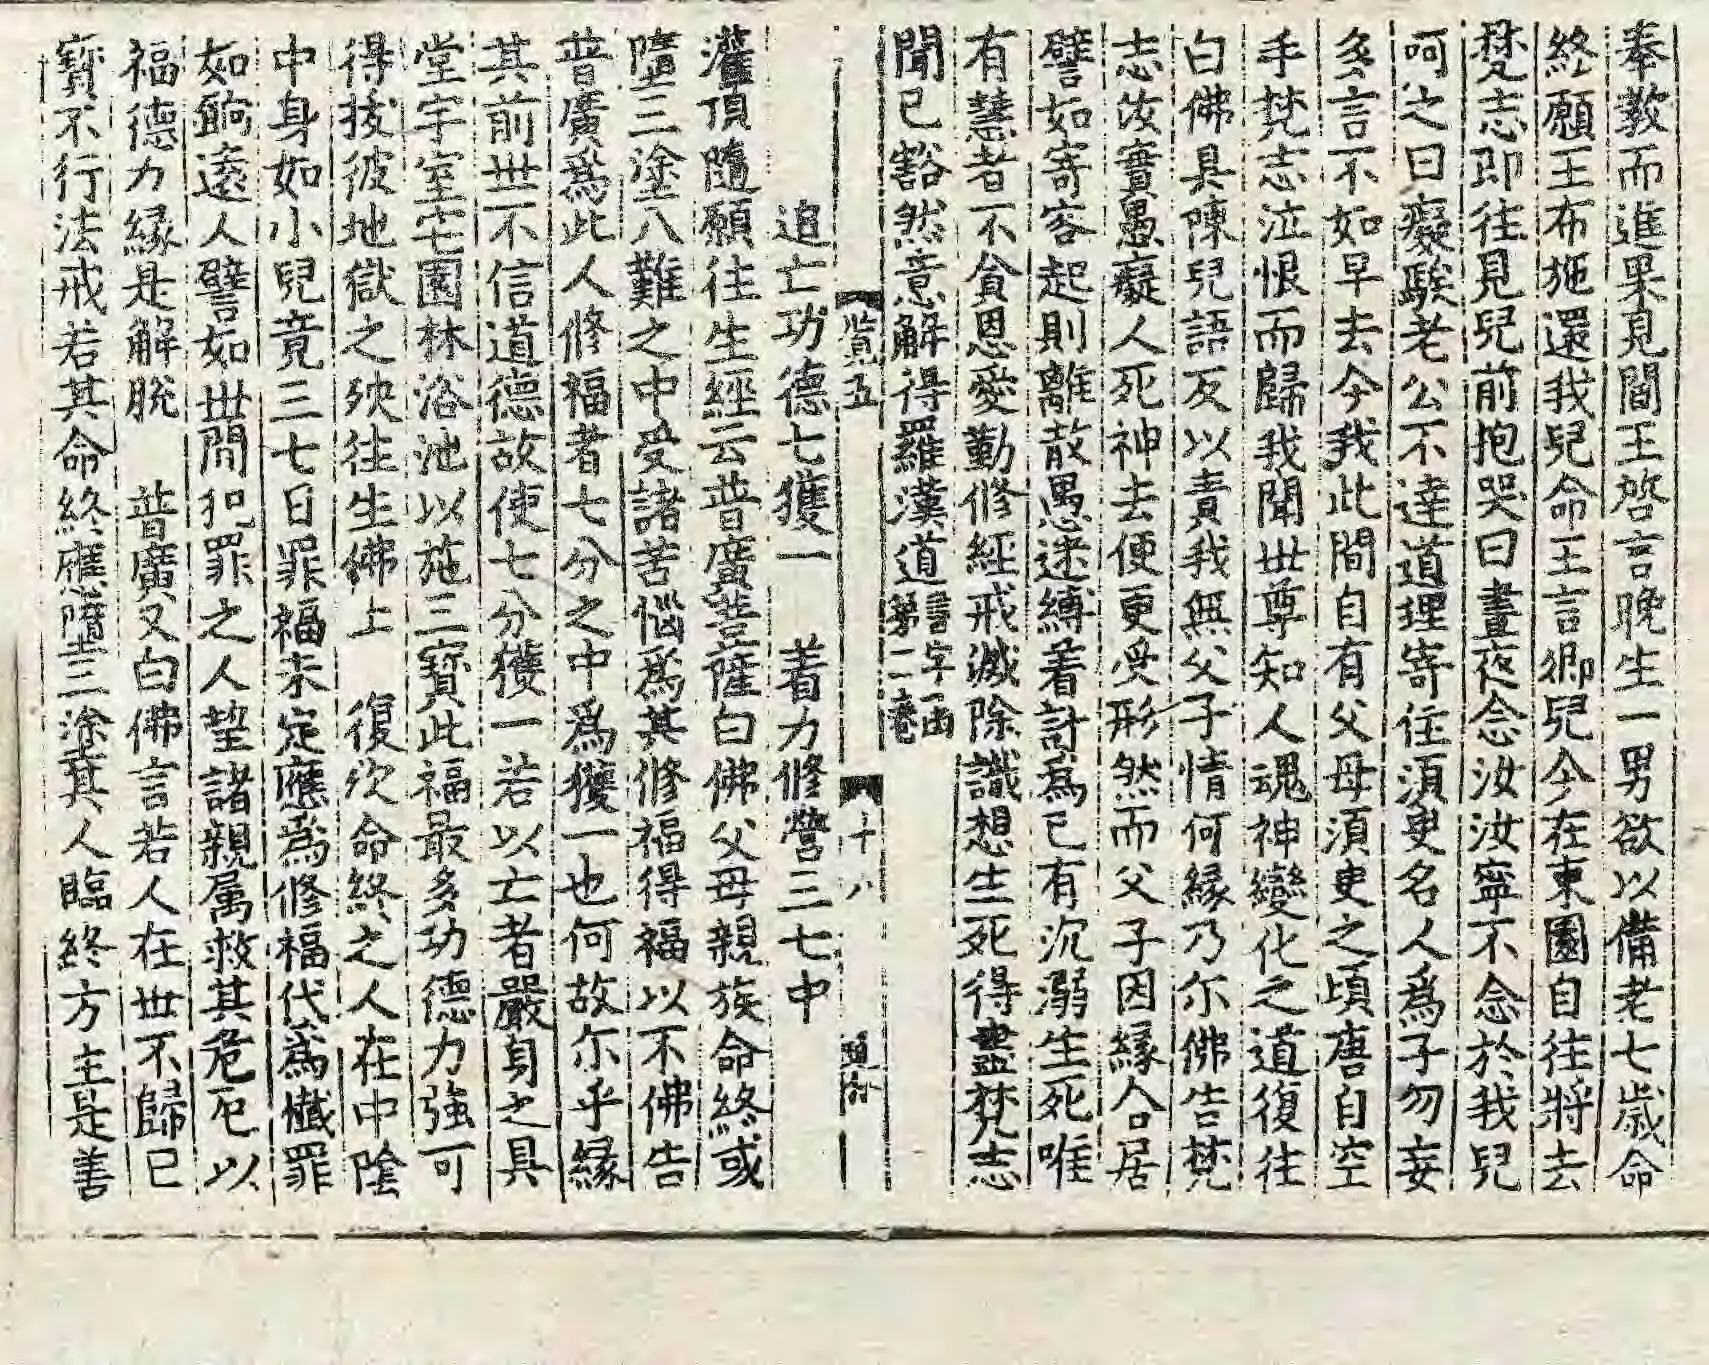 奉敎而進果見閻王啓言晚生一男欲以備老七歲命
終願王布施還我兒命王言卿兒今在東園自往將去
梵志即往見兒前抱哭曰晝夜念汝汝寧不念於我兒
呵之曰癡騃老公不達道理寄住須臾名人爲子勿妄
多言不如早去今我此間自有父母須臾之頃唐自空
手梵志泣恨而歸我聞世尊知人魂神變化之道復往
白佛具陳兒語反以責我無父子情何緣乃尒佛告梵
志汝實愚癡人死神去便更受形然而父子因緣合居
譬如寄客起則離散愚迷縛着計爲己有沉溺生死唯
有慧者不貪恩愛勤修經戒滅除識想生死得盡梵志
聞已豁然意解得羅漢道
言字函
第二卷
覽五 十八
追亡功德七獲一 着力修營三七中
灌頂隨願往生經云普廣菩薩白佛父母親族命終或
墮三塗八難之中受諸苦惱爲其修福得福以不佛告
普廣爲此人修福者七分之中爲獲一也何故尒乎緣
其前世不信道德故使七分獲一若以亡者嚴身之具
堂宇室宅園林浴池以施三寶此福最多功德力強可
得拔彼地獄之殃往生佛上 復次命終之人在中陰
中身如小兒竟三七日罪福未定應爲修福代爲懺罪
如餉遠人譬如世間犯罪之人望諸親屬救其危厄以
福德力緣是解脫 普廣又白佛言若人在世不歸三
寶不行法戒若其命終應墮三塗其人臨終方主是善